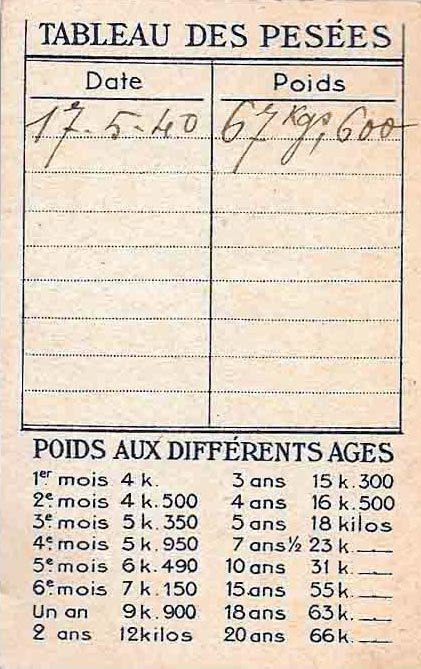 TABLEAU DES PESÉES
Date Poids
17-5-40 67 Kgs, 600
POIDS AUX DIFFÉRENTS AGES
1er mois 4 k. 3 ans 15 k. 300
2e mois 4 k. 500 4 ans 16 k. 500
3e mois 5 k. 350 5 ans 18 kilos
4e mois 5 k. 950 7 ans ½ 23 k. —
5e mois 6 k. 490 10 ans 31 k. —
6e mois 7 k. 150 15 ans 55 k. —
Un an 9 k. 900 18 ans 63 k. —
2 ans 12 kilos 20 ans 66 k. —